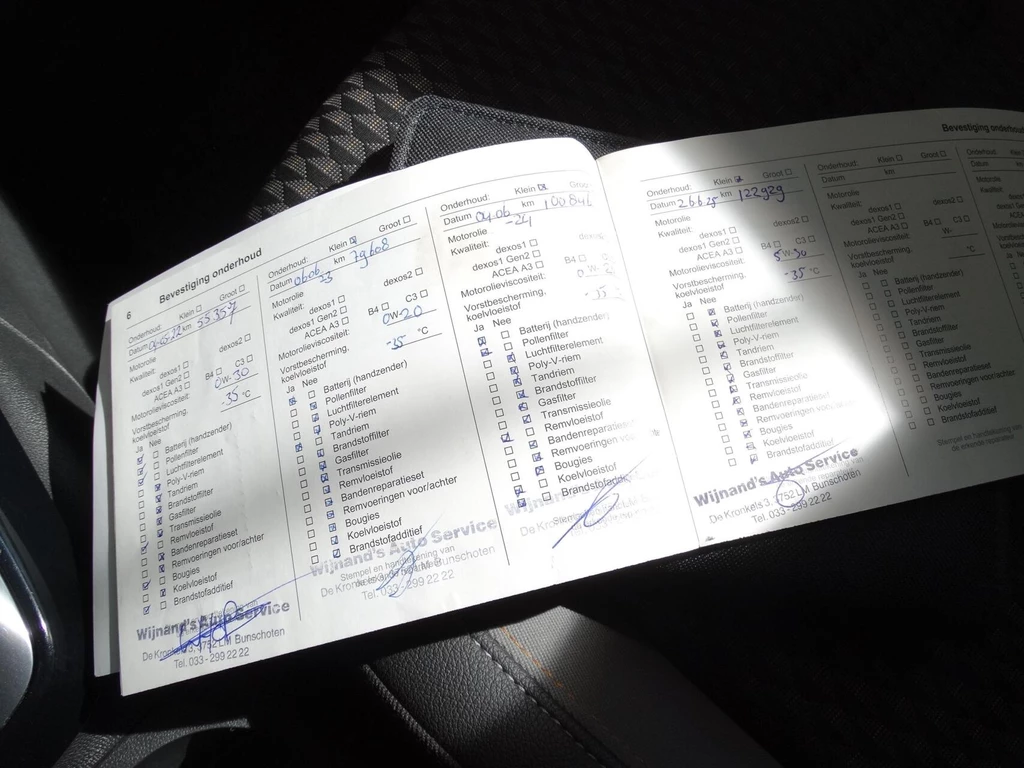 6
Bevestiging onderhoud
Onderhoud: Klein Groot
Datum km 55357
Motorolie
Kwaliteit: dexos1 dexos2
dexos1 Gen2
ACEA A3 B4 C3
Motorolieviscositeit: 0W-30
Vorstbescherming, koelvloeistof 35 °C
Ja Nee
Batterij (handzender)
Pollenfilter
Luchtfilterelement
Poly-V-riem
Tandriem
Brandstoffilter
Gasfilter
Transmissieolie
Remvloeistof
Bandenreparatieset
Remvoeringen voor/achter
Bougies
Koelvloeistof
Brandstofadditief
Wijnand's Auto Service
De Kronkels 3, 3752 LM Bunschoten
Tel. 033 - 299 22 22
Onderhoud: Klein Groot
Datum 06 06 23 km 79608
Motorolie
Kwaliteit: dexos1 dexos2
dexos1 Gen2
ACEA A3 B4 C3
Motorolieviscositeit: 0W-20
Vorstbescherming, koelvloeistof -35 °C
Ja Nee
Batterij (handzender)
Pollenfilter
Luchtfilterelement
Poly-V-riem
Tandriem
Brandstoffilter
Gasfilter
Transmissieolie
Remvloeistof
Bandenreparatieset
Remvoeringen voor/achter
Bougies
Koelvloeistof
Brandstofadditief
Wijnand's Auto Service
Stempel en handtekening van
De Kronkels
Tel. 033 - 299 22 22
Onderhoud: Klein Groot
Datum 04-06-24 km
Motorolie
Kwaliteit:
dexos1
dexos1 Gen2
ACEA A3
Motorolieviscositeit:
Vorstbescherming, koelvloeistof -35
Ja Nee
Batterij (handzender)
Pollenfilter
Luchtfilterelement
Poly-V-riem
Tandriem
Brandstoffilter
Gasfilter
Transmissieolie
Remvloeistof
Bandenreparatieset
Remvoeringen
Bougies
Koelvloeistof
De Kronkels
Bevestiging onderhoud
Onderhoud: Klein Groot
Datum 26625 km 122929
Motorolie
Kwaliteit: dexos1 dexos2
dexos1 Gen2
ACEA A3 B4 C3
Motorolieviscositeit: 5W-30
Vorstbescherming, koelvloeistof -35 °C
Ja Nee
Batterij (handzender)
Pollenfilter
Luchtfilterelement
Poly-V-riem
Tandriem
Brandstoffilter
Gasfilter
Transmissieolie
Remvloeistof
Bandenreparatieset
Remvoeringen voor/achter
Bougies
Koelvloeistof
Brandstofadditief
Wijnand's Auto Service
De Kronkels 3, 3752 LM Bunschoten
Tel. 033-299 22 22
Onderhoud: Klein Groot
Datum km
Motorolie
Kwaliteit: dexos1 dexos2
dexos1 Gen2
ACEA A3 B4 C3
Motorolieviscositeit: W-
Vorstbescherming, koelvloeistof °C
Ja Nee
Batterij (handzender)
Pollenfilter
Luchtfilterelement
Poly-V-riem
Tandriem
Brandstoffilter
Gasfilter
Transmissieolie
Remvloeistof
Bandenreparatieset
Remvoeringen voor/achter
Bougies
Koelvloeistof
Brandstofadditief
Stempel en handtekening van
de erkende reparateur
Onderhoud:
Datum
Motorolie
Kwaliteit: